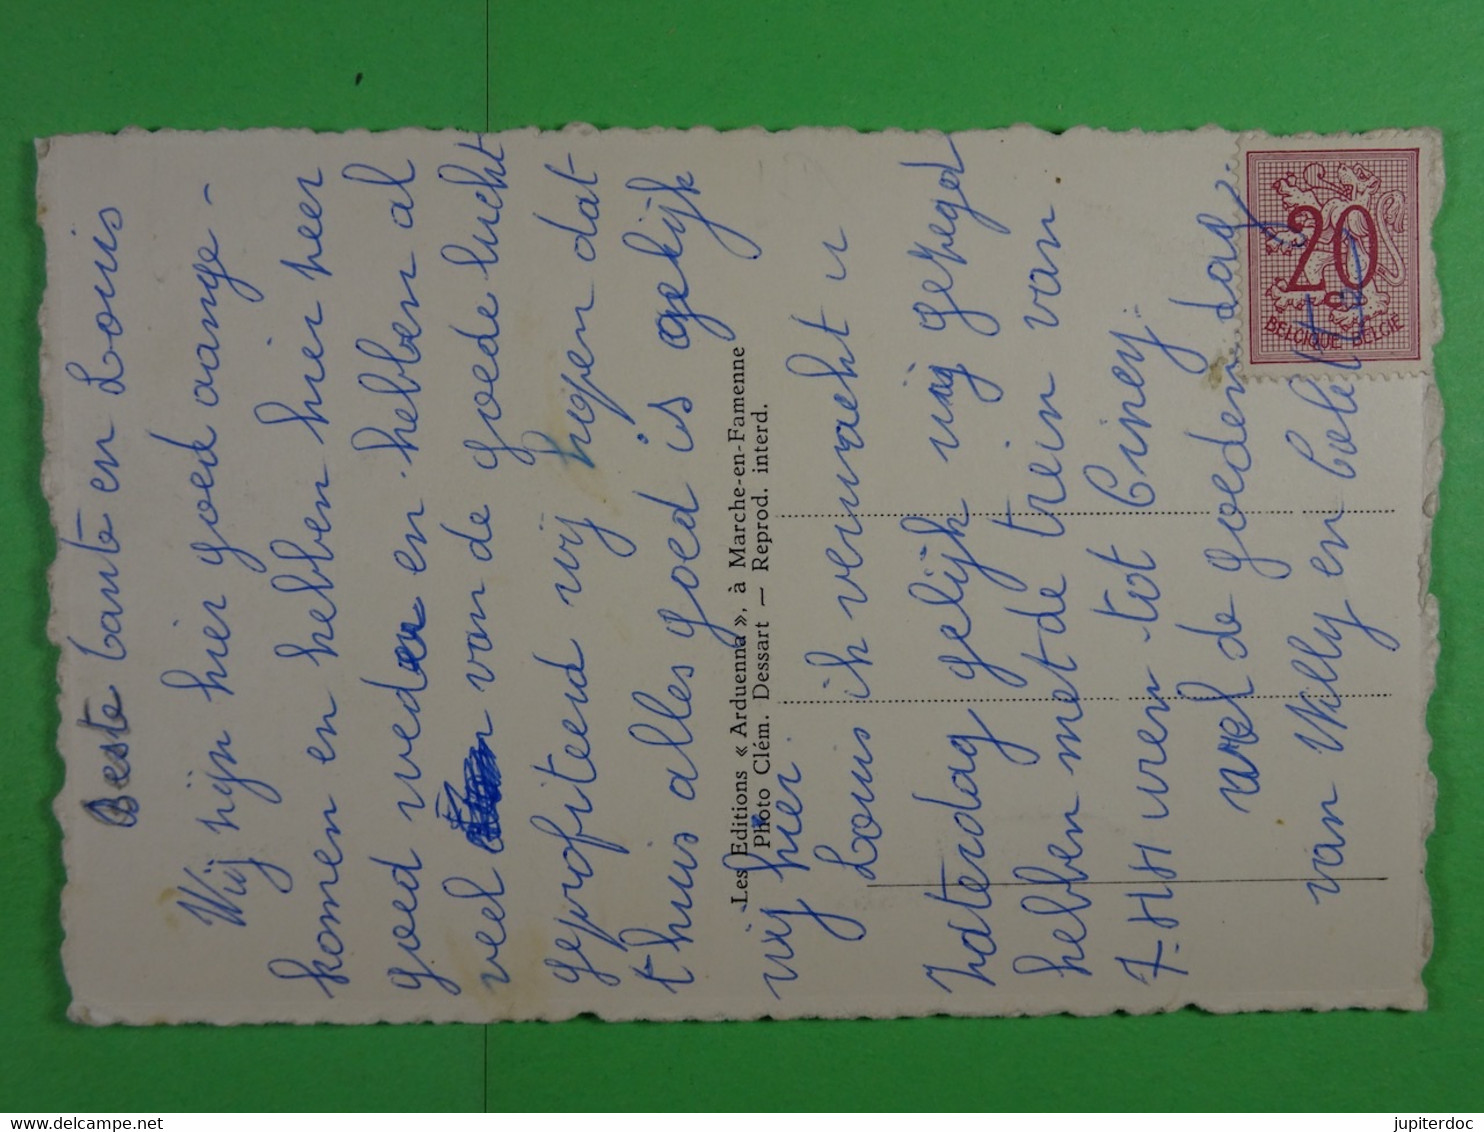 Beste tante en Louis
Wij zijn hier goed aange-
komen en hebben hier zeer
goed weder en hebben al
veel van de goede lucht
geprofiteerd wij hopen dat
thuis alles goed is gelijk
wij hier.
Louis ik verwacht u
zaterdag gelijk wij geregeld
hebben met de trein van
7-44 uren tot Ciney.
de goeden dag
van Willy en
Les Editions « Arduenna », à Marche-en-Famenne
Photo Clém. Dessart — Reprod. interd.
20
BELGIQUE BELGIË
delcampe.net
jupiterdoc